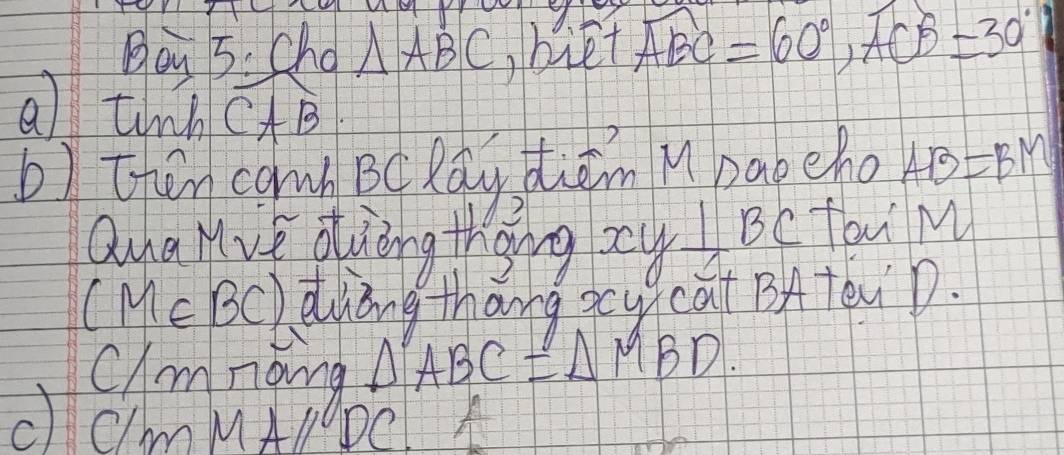 Bài 5: Cho Δ ABC, biết ABC = 60°, ACB = 30°
a) tính CAB.
b) Trên cạnh BC lấy điểm M sao cho AB = BM
Qua M vẽ đường thẳng xy ⊥ BC tại M
(M ∈ BC) đường thẳng xy cắt BA tại D.
C/m rằng Δ ABC = Δ MBD.
c) C/m MA // DC. A